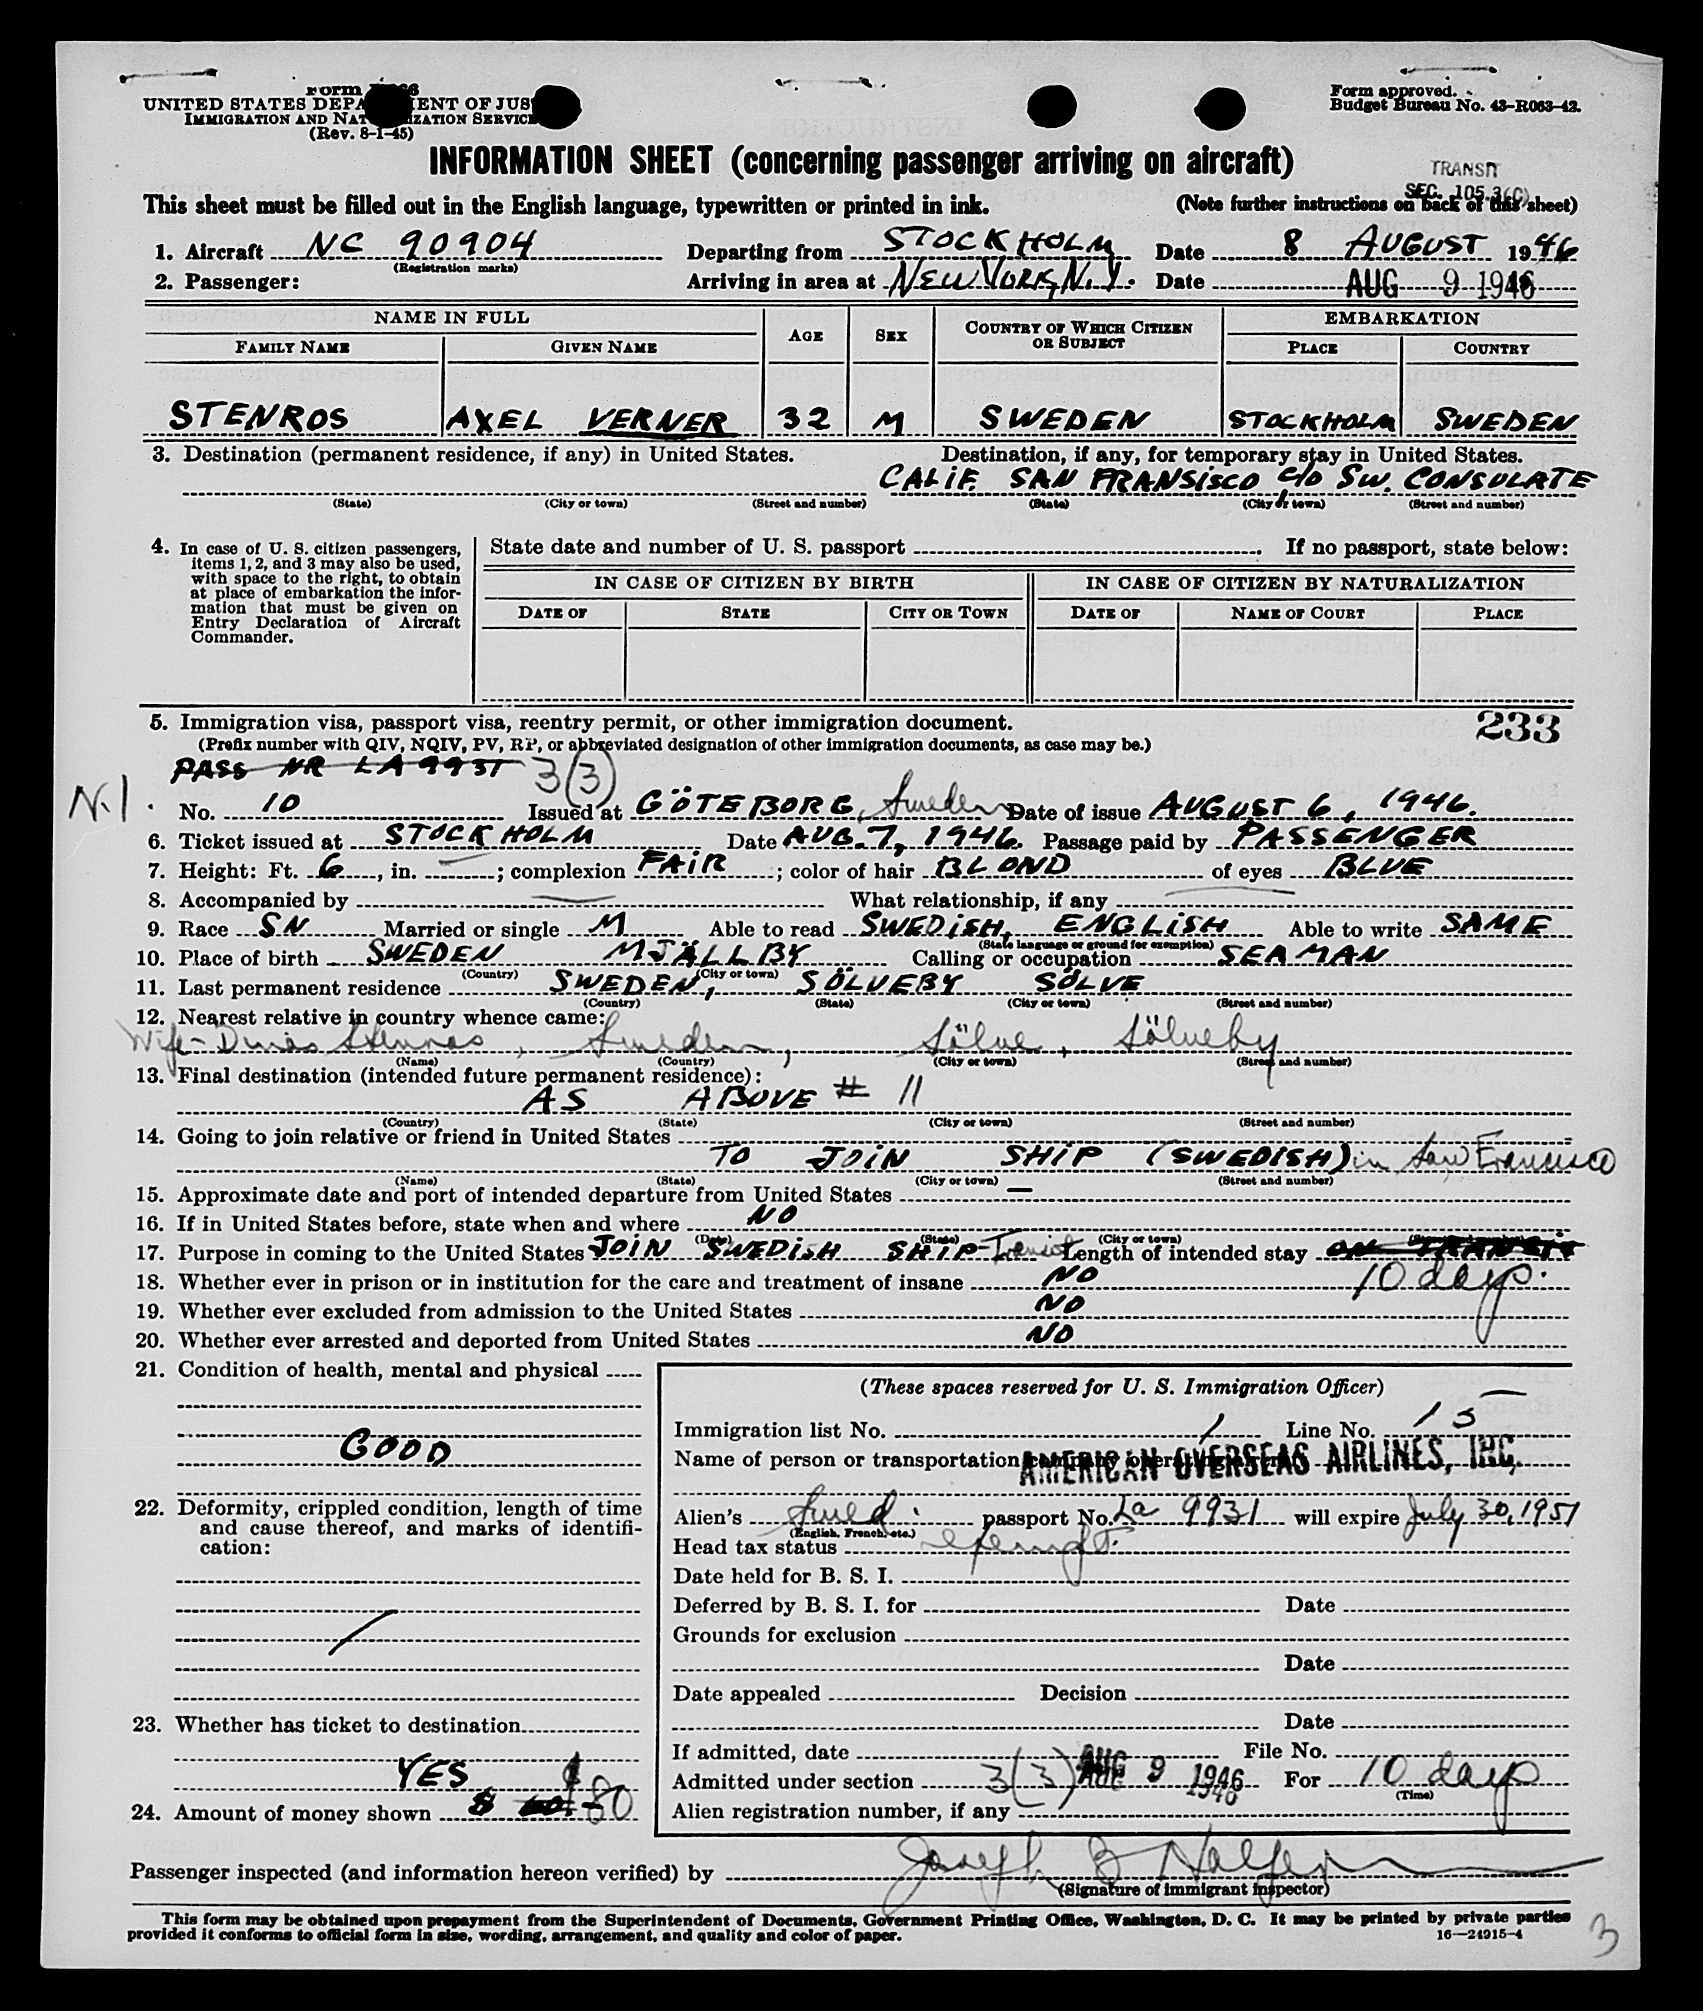 UNITED STATES DEPARTMENT OF JUSTICE
IMMIGRATION AND NATURALIZATION SERVICE
(Rev. 8-1-45)
Form approved.
Budget Bureau No. 43-R063-42.
INFORMATION SHEET (concerning passenger arriving on aircraft)
TRANSIT
SEC. 105.3(C)
This sheet must be filled out in the English language, typewritten or printed in ink. (Note further instructions on back of this sheet)
1. Aircraft NC 90904 Departing from STOCKHOLM Date 8 AUGUST 1946
(Registration marks)
2. Passenger: Arriving in area at NEW YORK, N.Y. Date AUG 9 1946
NAME IN FULL AGE SEX COUNTRY OF WHICH CITIZEN OR SUBJECT EMBARKATION
FAMILY NAME GIVEN NAME PLACE COUNTRY
STENROS AXEL VERNER 32 M SWEDEN STOCKHOLM SWEDEN
3. Destination (permanent residence, if any) in United States. Destination, if any, for temporary stay in United States.
CALIF. SAN FRANSISCO c/o SW. CONSULATE
(State) (City or town) (Street and number) (State) (City or town) (Street and number)
4. In case of U. S. citizen passengers,
items 1, 2, and 3 may also be used,
with space to the right, to obtain
at place of embarkation the infor-
mation that must be given on
Entry Declaration of Aircraft
Commander.
State date and number of U. S. passport If no passport, state below:
IN CASE OF CITIZEN BY BIRTH IN CASE OF CITIZEN BY NATURALIZATION
DATE OF STATE CITY OR TOWN DATE OF NAME OF COURT PLACE
5. Immigration visa, passport visa, reentry permit, or other immigration document. 233
(Prefix number with QIV, NQIV, PV, RP, or abbreviated designation of other immigration documents, as case may be.)
PASS NR LA 9931 3(3)
N.I. No. 10 Issued at GÖTEBORG, Sweden Date of issue AUGUST 6, 1946.
6. Ticket issued at STOCKHOLM Date AUG. 7, 1946. Passage paid by PASSENGER
7. Height: Ft. 6, in. —; complexion FAIR; color of hair BLOND of eyes BLUE
8. Accompanied by — What relationship, if any —
9. Race SN Married or single M Able to read SWEDISH, ENGLISH Able to write SAME
(State language or ground for exemption)
10. Place of birth SWEDEN MJÄLLBY Calling or occupation SEAMAN
(Country) (City or town)
11. Last permanent residence SWEDEN, SÖLVEBY SÖLVE
(Country) (State) (City or town) (Street and number)
12. Nearest relative in country whence came:
Wife - Stenros, Sweden, Sölve, Sölveby
(Name) (Country) (City or town) (Street and number)
13. Final destination (intended future permanent residence):
AS ABOVE # 11
(Country) (State) (City or town) (Street and number)
14. Going to join relative or friend in United States
TO JOIN SHIP (SWEDISH) in San Francisco
(Name) (State) (City or town) (Street and number)
15. Approximate date and port of intended departure from United States —
16. If in United States before, state when and where NO
(Date) (State) (City or town) (Street and number)
17. Purpose in coming to the United States JOIN SWEDISH SHIP - Transit Length of intended stay ON TRANSIT
10 days.
18. Whether ever in prison or in institution for the care and treatment of insane NO
19. Whether ever excluded from admission to the United States NO
20. Whether ever arrested and deported from United States NO
21. Condition of health, mental and physical
GOOD
22. Deformity, crippled condition, length of time
and cause thereof, and marks of identifi-
cation:
23. Whether has ticket to destination
YES
24. Amount of money shown $80
(These spaces reserved for U. S. Immigration Officer)
Immigration list No. 1 Line No. 15
Name of person or transportation company operating aircraft
AMERICAN OVERSEAS AIRLINES, INC.
Alien's Swed. passport No. La 9931 will expire July 30, 1951
(English, French, etc.)
Head tax status exempt.
Date held for B. S. I.
Deferred by B. S. I. for Date
Grounds for exclusion
Date
Date appealed Decision
Date
If admitted, date File No.
Admitted under section 3(3) AUG 9 1946 For 10 days
(Time)
Alien registration number, if any
Passenger inspected (and information hereon verified) by Joseph
(Signature of immigrant inspector)
This form may be obtained upon prepayment from the Superintendent of Documents, Government Printing Office, Washington, D. C. It may be printed by private parties
provided it conforms to official form in size, wording, arrangement, and quality and color of paper.
16—24915-4
3